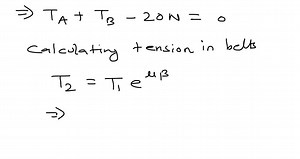 ⇒ T_A + T_B - 20N = 0
Calculating tension in belts
T_2 = T_1 e^{μβ}
⇒